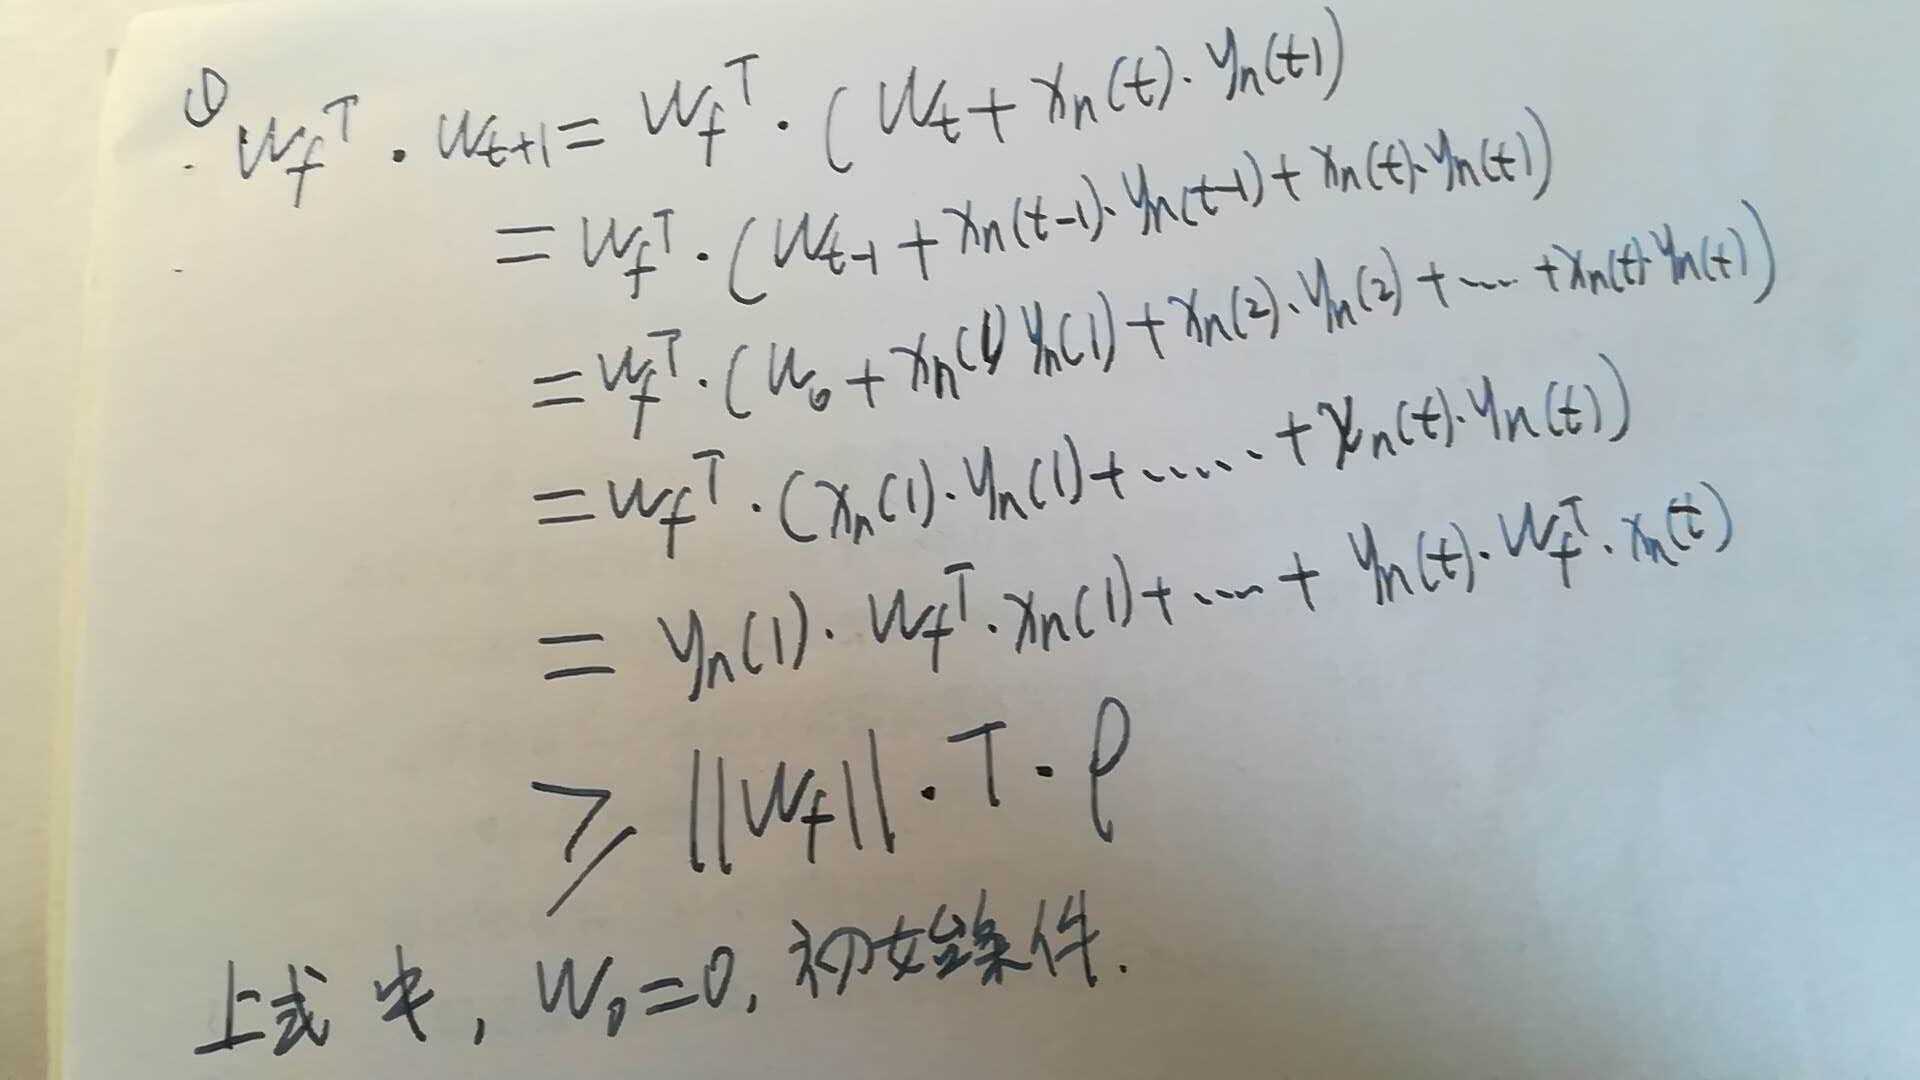 ① W_f^T · W_{t+1} = W_f^T · (W_t + x_n(t) · y_n(t))
= W_f^T · (W_{t-1} + x_n(t-1) · y_n(t-1) + x_n(t) · y_n(t))
= W_f^T · (W_0 + x_n(1) y_n(1) + x_n(2) · y_n(2) + ... + x_n(t) · y_n(t))
= W_f^T · (x_n(1) · y_n(1) + ...... + x_n(t) · y_n(t))
= y_n(1) · W_f^T · x_n(1) + ... + y_n(t) · W_f^T · x_n(t)
≥ ||W_f|| · T · ρ
上式中, W_0 = 0, 初始条件.